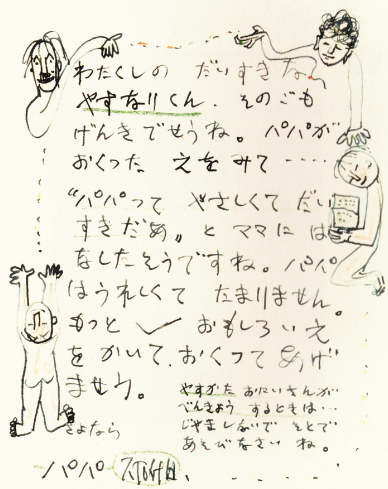 わたくしの だいすきな、
やすなりくん. そのごも
げんきでせうね。パパが
おくった えをみて‥‥
“パパって やさしくて だい
すきだあ〟と ママに は
なしたそうですね。パパ
はうれしくて たまりません。
もっと おもしろいえ
をかいて、おくって あげ
ませう。
やすかた おにいさんが
べんきょう するときは…
じゃましないで そとで
あそびなさい ね。
さよなら
パパ